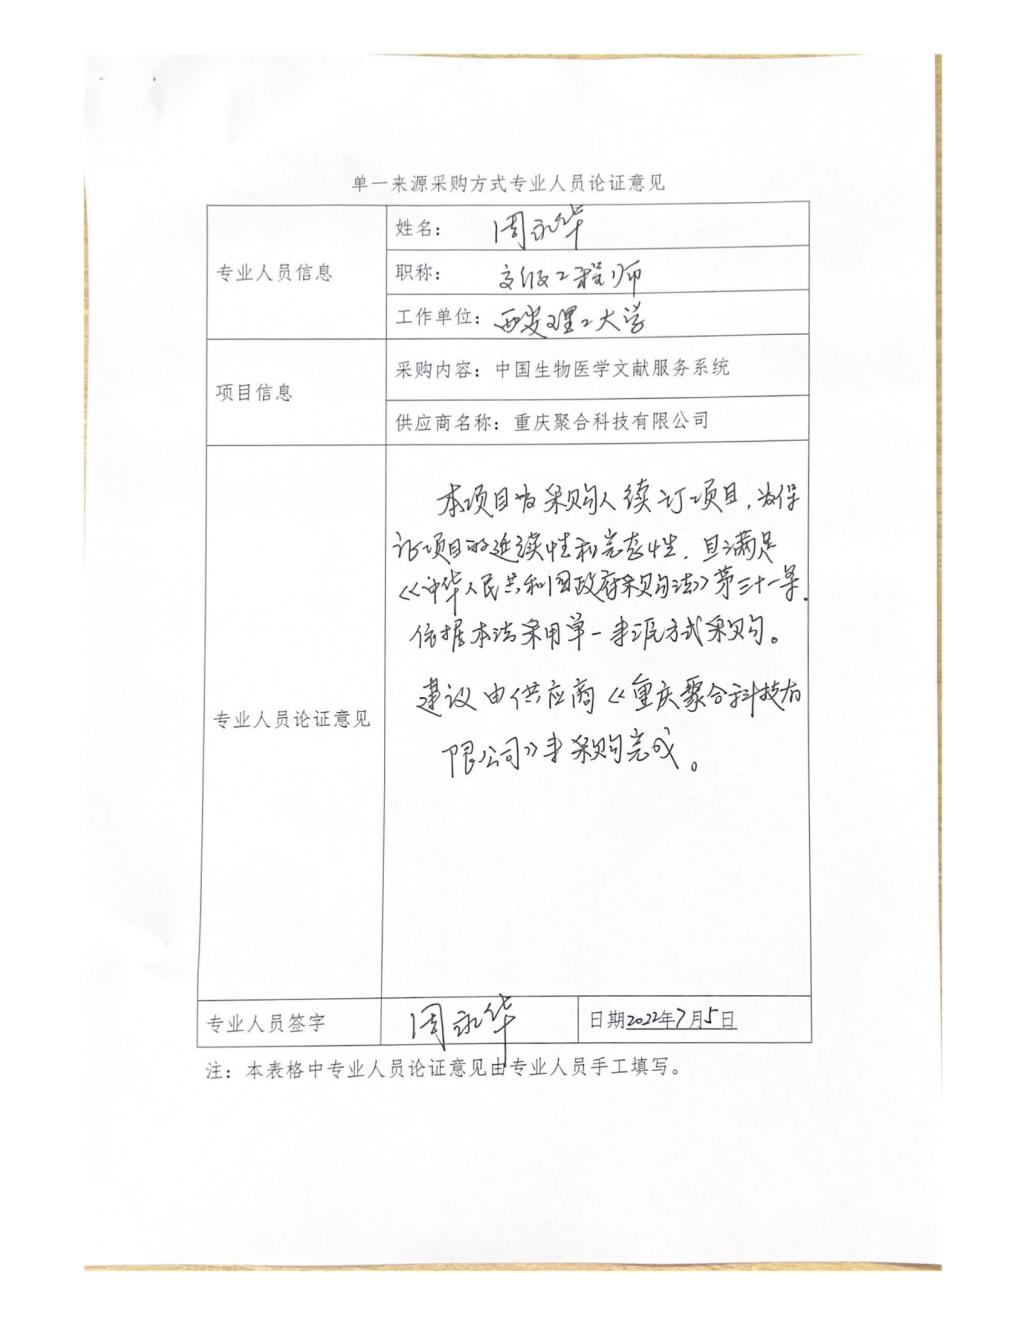 单一来源采购方式专业人员论证意见
专业人员信息
姓名： 周永华
职称： 高级工程师
工作单位： 西安理工大学
项目信息
采购内容：中国生物医学文献服务系统
供应商名称：重庆聚合科技有限公司
专业人员论证意见
本项目为采购人续订项目，为保
证项目的延续性和完整性，且满足
《中华人民共和国政府采购法》第三十一条，
依据本法采用单一来源方式采购。
建议由供应商《重庆聚合科技有
限公司》来采购完成。
专业人员签字
周永华
日期2022年7月5日
注：本表格中专业人员论证意见由专业人员手工填写。